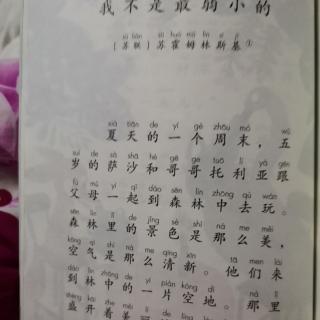 我不是最弱小的
sū lián sū huò mǔ lín sī jī
［苏联］苏霍姆林斯基①
xià tiān de yí gè zhōu mò wǔ
夏天的一个周末，五
suì de sà shā hé gē ge tuō lì yà gēn
岁的萨沙和哥哥托利亚跟
fù mǔ yì qǐ dào sēn lín zhōng qù wán
父母一起到森林中去玩。
sēn lín lǐ de jǐng sè shì nà me měi
森林里的景色是那么美，
kōng qì shì nà me qīng xīn tā men lái
空气是那么清新。他们来
dào lín zhōng de yí piàn kòng dì nà lǐ
到林中的一片空地。那里
shèng kāi zhe měi
盛开着美丽